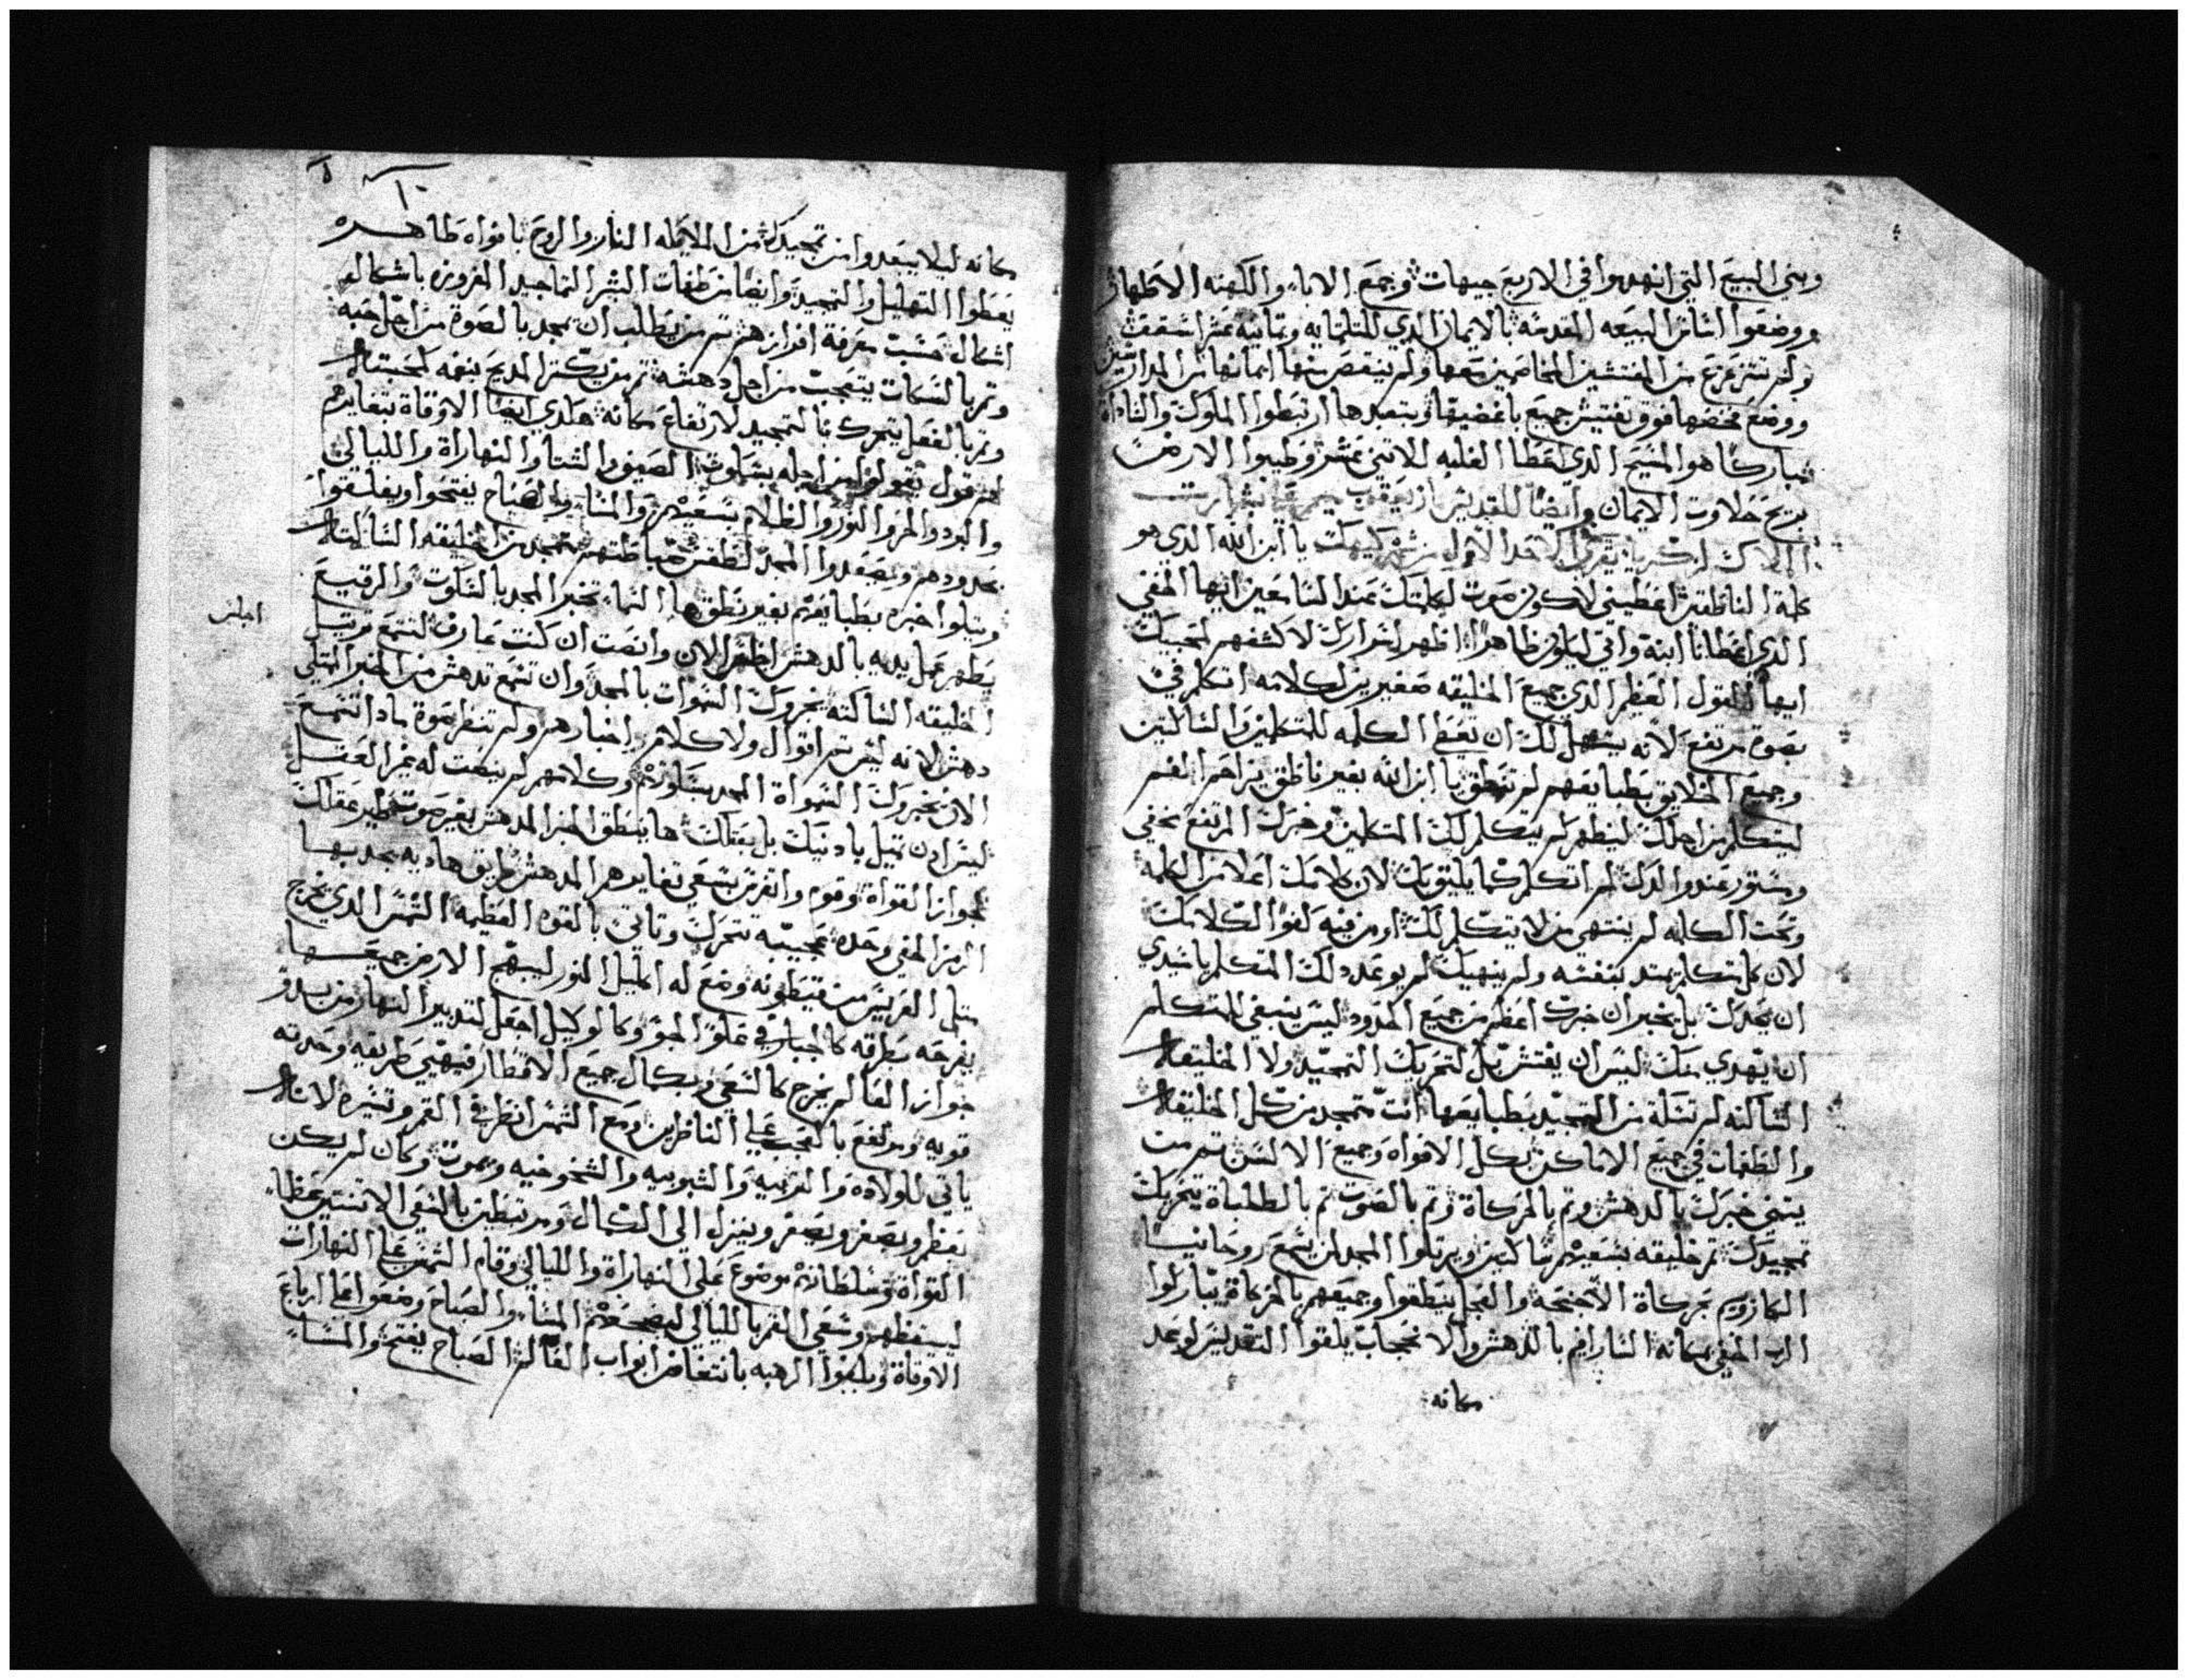 وبني البيع التي انهدموا في الاربع جيهات وجمع الاباء والكهنه الاطهار
ووضعوا اساس البيعه المقدسه بالايمان الدي للتلتمايه وتمانيه عشر اسقف
ولم تتزعزع من المفتشين المخاصمين معها ولم ينقص منها ايمانها من المدارسين
ووضع فوق تفتيش جميع باغضيها وبتعبدها ارتبطوا الملوك والساداة
مباركا هو المسيح الدي اعطا الغلبه للاتني عشر وطيبوا الارض
بريح حلاوت الايمان وايضا للقديس يعقوب
الملاك لزكريا يقرى الاحد الاول من شهر كيهك يا ابن الله الدي هو
كلمة الناطقين اعطيني لاكون صوت لكلمتك عند السامعين ايها المخفي
الدي اعطانا ابنة واتي ليكون ظاهرا اظهر اسرارك لاكشفهم لمحبيك
ايها القول العظيم الدي جميع الخليقه صغيرين لكلامه اتكلم في
بصوة مرتفع لانه يسهل لك ان تعطي الكلمه للمتكلمين والساكتين
وجميع الخلايق بطبايعهم لم تنطق يا ابن الله بغير ناطق
ليتكلم من اجلك ليظهر لم يتكلم لك المتكلمين وخبرك المرتفع مخفي
ومستور عند والدك لم اتكلم كما يليق بك لان كلامك اعلا من الكلمة
وتحت الكلمه لم ينتهي من لا يتكلم لك او من فيه لغو الكلامك
لان كل متكلم يمتد كنفسه ولم ينهيك لم يوعد لك المتكلم يا سيدي
ان يحدك بل يخبر ان خبرك اعظم من جميع الحدود ليس ينبغي للمتكلم
ان يهدي منك ليس ان يفتش بل لتحريك التمجيد ولا الخليقه
الساكته لم تسلة من التمجيد بطبايعها انت متمجد من كل الخليقه
والطغمات في جميع الاماكن بكل الافواه وجميع الالسن تم من
يتني خبرك بالدهش وتم بالحركاة وتم بالصوت تم بالطلباة يتحرك
تمجيدك تم خليقه بسعيهم ساكتين ويرتلوا المجد لمن يسمع روحانيا
الكاروبيم بحركاة الاجنحه والعجل ينطقوا وجميعهم بالحركاة يباركوا
الرب المخفي بمكانه السارافيم بالدهش والاعجاب يلقوا التقديس لوعد
مكانه
مكانه ليلا يبعدوا من تمجيدك من الملايكه النار والروح بافواه طاهره
يعطوا التهليل والتمجيد وايضا من طغمات البشر التماجيد المفروزه باشكال
اشكال حسب معرفة افرازهم تم من يطلب ان يمجد بالصوة من اجل حبه
وتم بالسكات يتعجب من اجل دهشه تم من يكتر المديح بنغمه لمحبته
وتم بالفعل يتحرك بالتمجيد لارتفاع مكانه هكدي ايضا الاوقاة بتغايرهم
لتم قول يقولوا من اجله بسكوت الصيف والشتا والنهاراة والليالي
والبرد والحر والنور والظلام بسعيهم والمسا والصباح يفتحوا ويغلقوا
بحدودهم ويصعدوا المجد
ويتلوا خبره بطبايعهم بغير نطق ها السما تخبر المجد بالسكوت والرقيع
يظهر عمل يديه بالدهش انظر الان وانصت ان كنت عارف لتسمع ترتيل
الخليقه الساكته يخبروك السموات بالمجد وان تسمع تدهش من الخبر الممتلي
دهش لانه ليس تم اقوال ولا كلام اخبارهم ولم تنظر صوة مادا تسمع
الان يخبروك السمواة المجد وكلامهم لم ينصت له غير العقل
ليس ادن تميل بادنيك بل بعقلك ها ينطق الخبر المدهش بغير صوت عقلك
لجواز القواة وقوم واتفرس بسعي تغايرهم المدهش طريق هاديه يجديها
الرمز المخفي وحده عجيبه تتحرك وتاتي بالقوه العظيمه الشمس الدي يخرج
متل العريس من قيطونه وضع له اكليل النور ليبهج الارض جميعها
يفرح بطرقه كالجبار في علو الجو وكالوكيل اجعل لتدبير النهار من بدو
جواز العالم يخرج كالسعي وبكمال جميع الاقطار فيهي طريقه وحدته
قويه ومرتفع بالعجب على الناظرين ومع الشمس انظر في القمر وتسيره لانه
ياتي للولاده والتربيه والشبوبيه والشخوخيه ويموت وكان لم يكن
يعظم ويصغر ويصغر وينزل الي الكمال ومرتبطين بالسعي الاتنين عظما
القواة وسلطانهم موضوع على النهاراة والليالي وقام الشمس على النهارات
ليبعظهم وسعي القمر بالليالي المسا والصباح وضعوا على ارباع
الاوقاة ويلبقوا الرهبه بانتفاض ابواب العالم الصباح يفتح والمسا